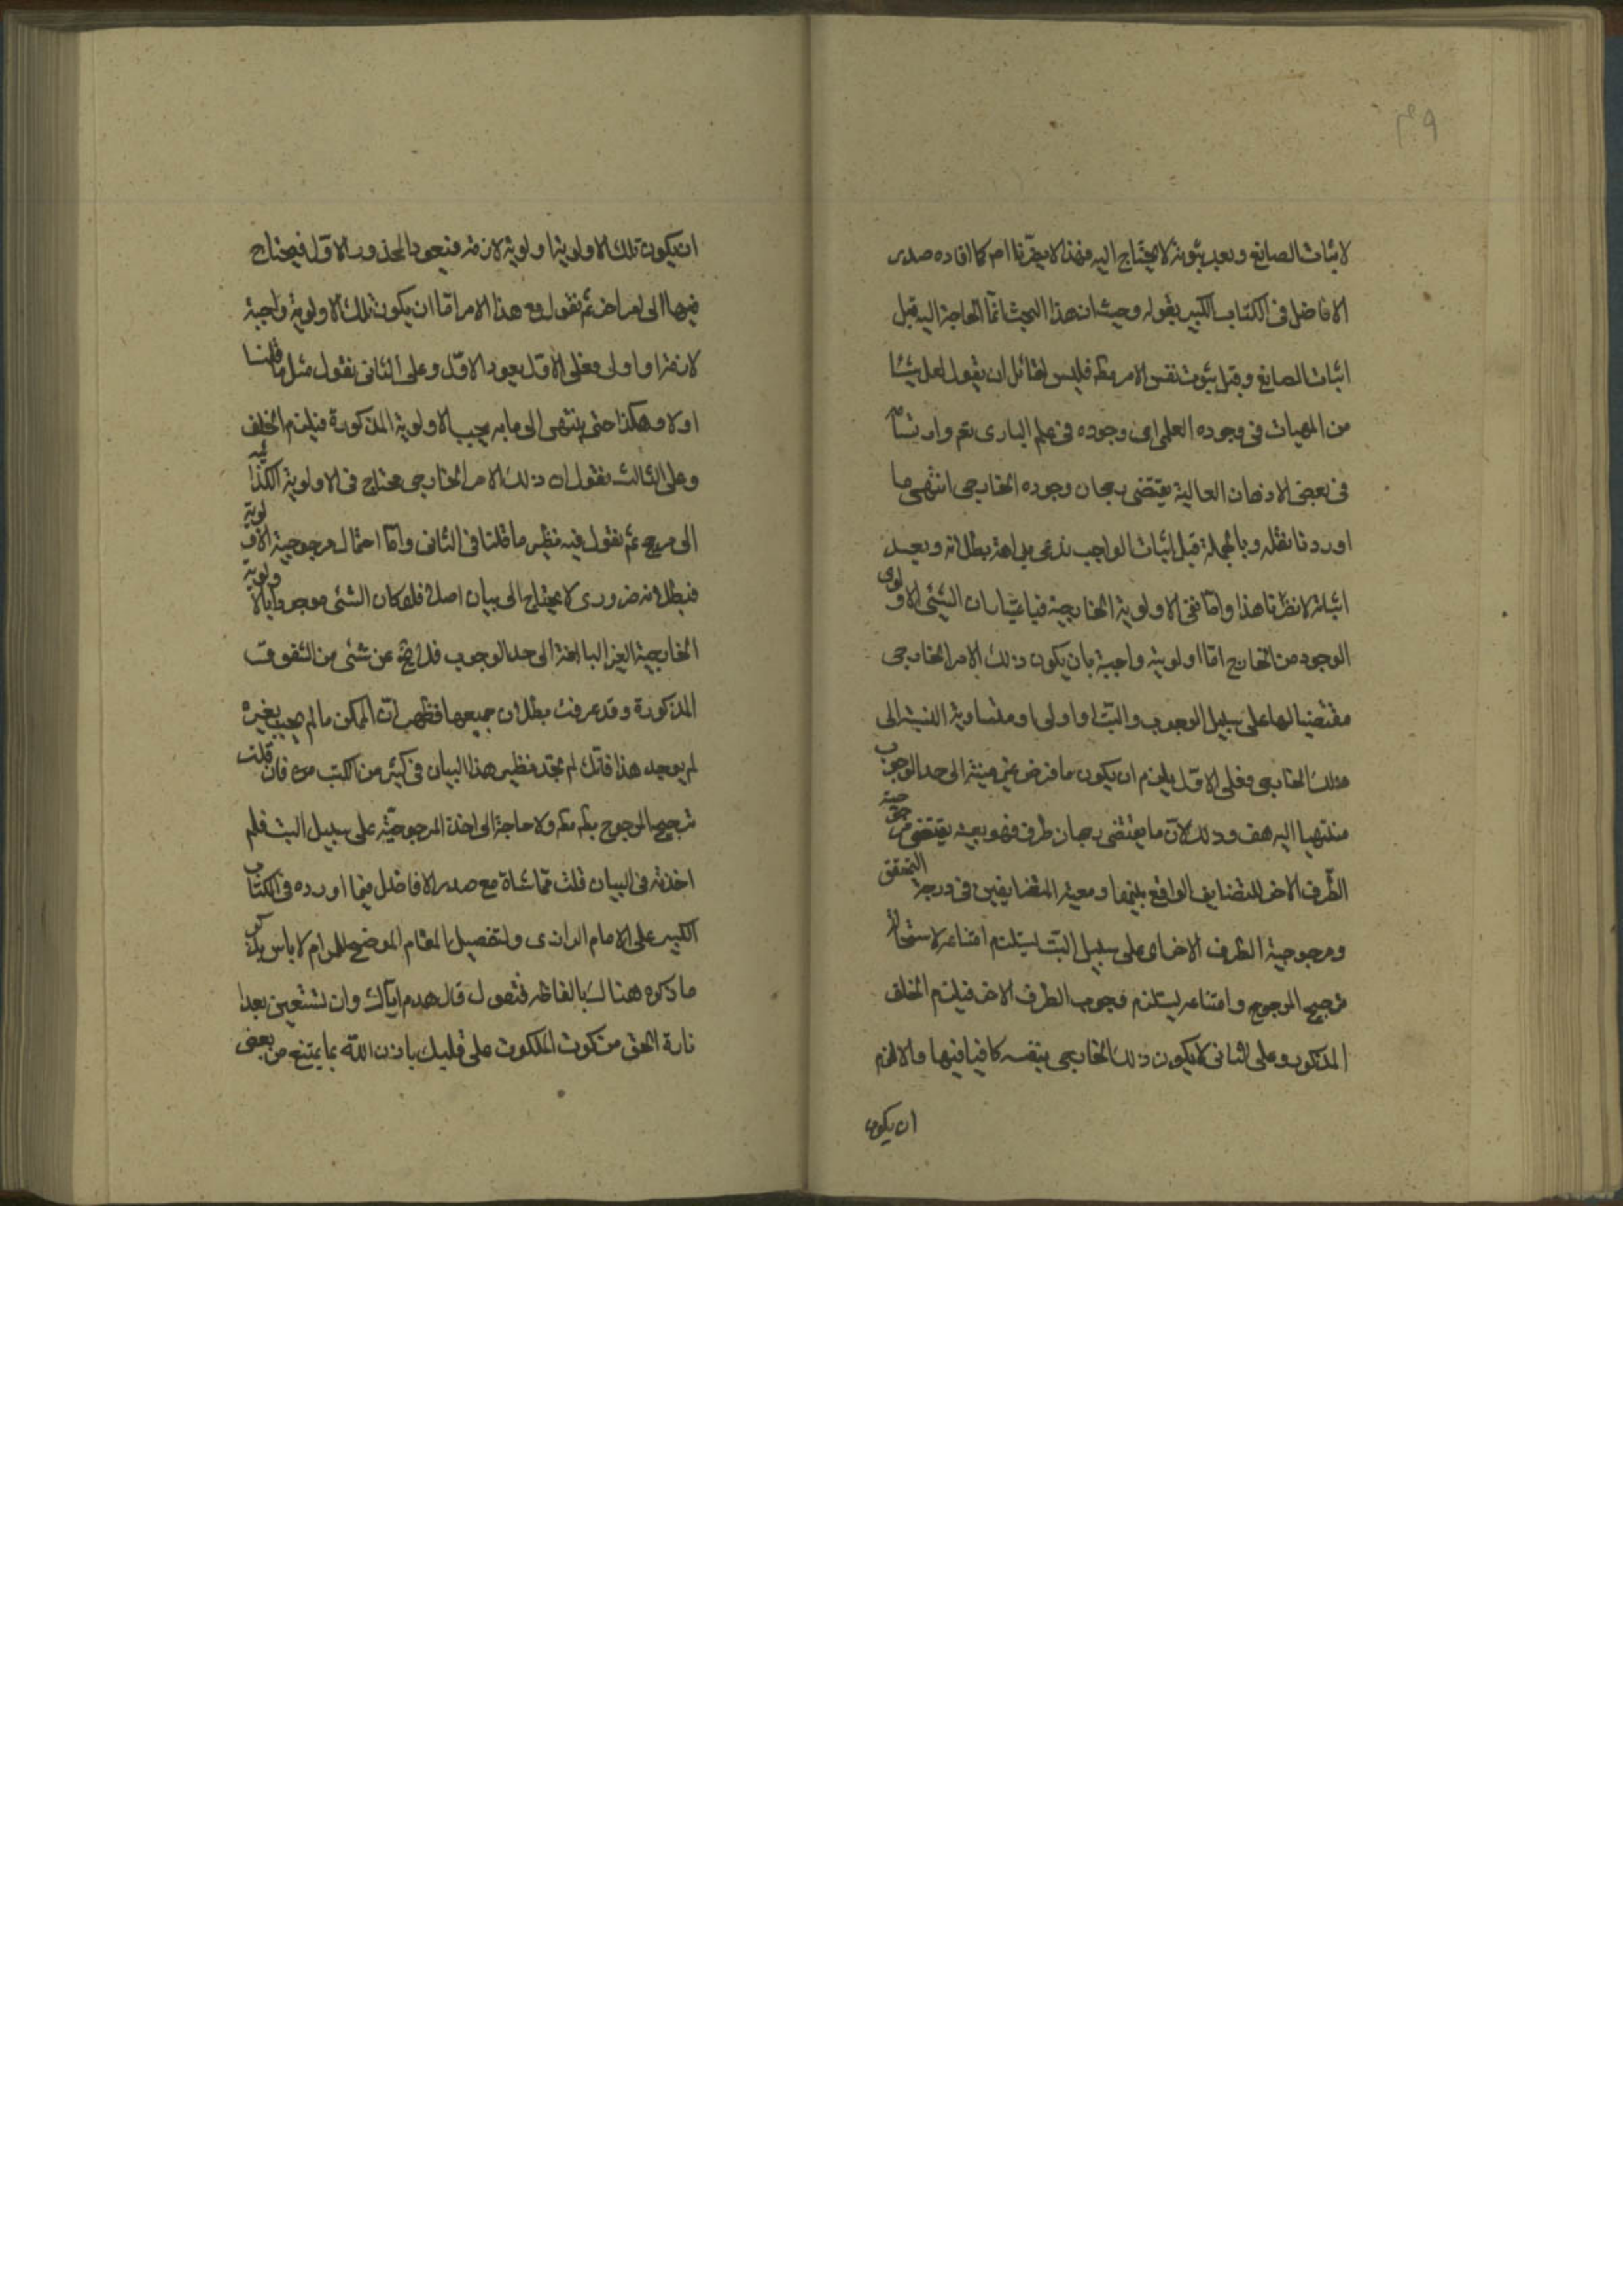 لاثبات الصانع وبعد ثبوته لا يحتاج اليه فهذا لا يضرنا ام كما افاده صدر
الافاضل فى الكتاب الكبير بقوله وحيث ان هذا البحث انما الحاجة اليه قبل
اثبات الصانع وقبل ثبوت نفس الامر مكم فليس لقائل ان يقول لعل شيئا
من المهيات فى وجوده العلمى اى وجوده فى علم البارى تعم وارتسامه
فى بعض الاذهان العالية يقتضى رجحان وجوده الخارجى انتهى ما
اوردنا نقله وبالجملة قبل اثبات الواجب ندعى بداهة بطلانه وبعد
اثباته لانظرنا هذا واما نفى الاولوية الخارجية فباعتبار ان الشئ الاولى
الوجود من الخارج اما اولويته واجبة بان يكون ذلك الامر الخارجى
مقتضيا لها على سبيل الوجوب والبت او اولى او متساوية النسبة الى
ذلك الخارجى فعلى الاول يلزم ان يكون ما فرض غير منته الى حد الوجوب
منتهيا اليه هف وذلك لان ما يقتضى رجحان طرف فهو بعينه يقتضى مرجوحية
الطرف الاخر للتضايف الواقع بينهما ومعية المتضايفين فى درجة التحقق
ومرجوحية الطرف الاخر اى على سبيل البت يستلزم امتناعه لاستحالة
ترجيح المرجوح وامتناعه يستلزم وجوب الطرف الاخر فيلزم الخلف
المذكور وعلى الثانى لا يكون ذلك الخارجى بنفسه كافيا فيها والا لزم
ان يكون
ان يكون تلك الاولوية اولوية لازمة فيعود المحذور الاول فيحتاج
فيها الى امر اخر ثم نقول مع هذا الامر اما ان يكون تلك الاولوية واجبة
لازمة او اولى فعلى الاول يعود الاول وعلى الثانى نقول مثل ما قلنا
اولا وهكذا حتى ينتهى الى ما به يجب الاولوية المذكورة فيلزم الخلف
وعلى الثالث نقول ان ذلك الامر الخارجى محتاج فى الاولوية الكذائية
الى مرجح ثم نقول فيه نظير ما قلنا فى الثانى واما احتمال مرجوحية الاولوية
فبطلانه ضرورى لا يحتاج الى بيان اصلا فلو كان الشئ موجودا بالاولوية
الخارجية الغير البالغة الى حد الوجوب فلا يخ عن شئ من الشقوق
المذكورة وقد عرفت بطلان جميعها فظهر ان الممكن ما لم يجب بغيره
لم يوجد هذا فانك لم تجد نظير هذا البيان فى كثير من الكتب فان قلت
ترجيح المرجوح بكم مكم ولا حاجة الى اخذ المرجوحية على سبيل البت فلم
اخذته فى البيان قلت مماشاة مع صدر الافاضل فيما اورده فى الكتاب
الكبير على الامام الرازى ولتفصيل المقام الموضح للمرام لا باس بذكر
ما ذكره هنالك بالفاظه فنقول قال هدم اياك وان تستعين بعد ا
نارة الحق من كوت الملكوت على قلبك باذن الله بما يمتنع من بعض